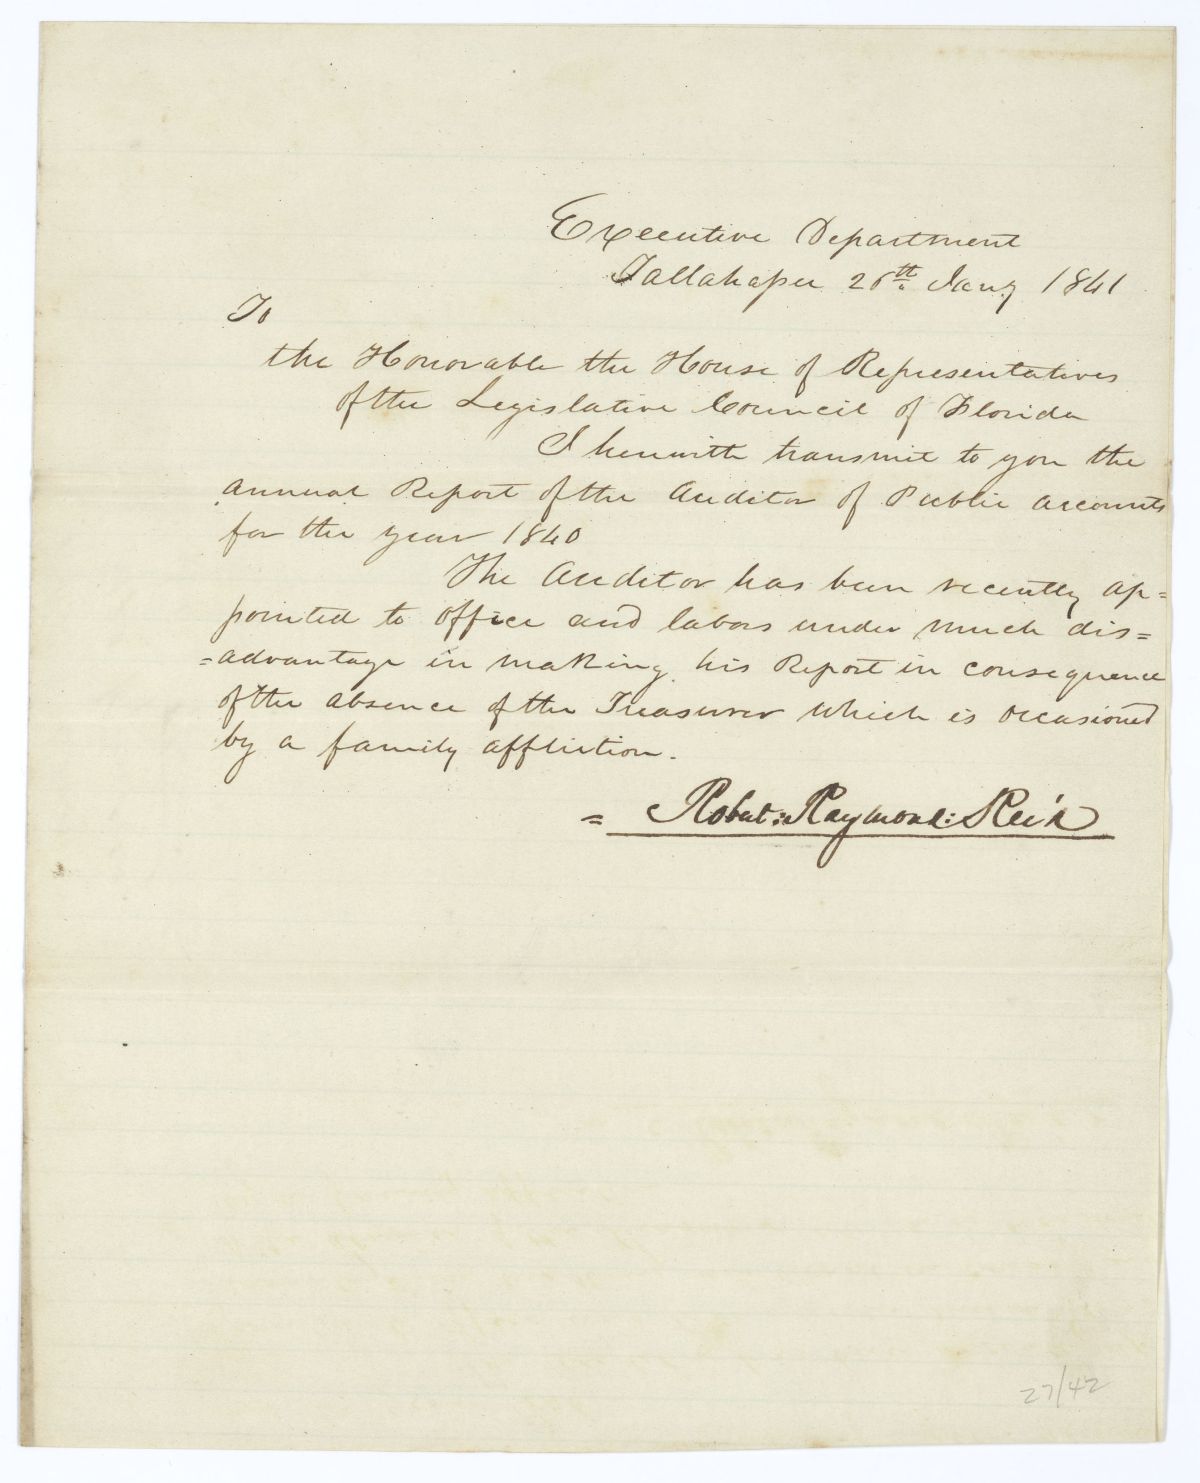 Executive Department
Tallahassee 26th Jany 1841
To
the Honorable the House of Representatives
of the Legislative Council of Florida
I herewith transmit to you the
annual Report of the Auditor of Public accounts
for the year 1840
The Auditor has been recently ap=
pointed to office and labors under much dis=
=advantage in making his Report in consequence
of the absence of the Treasurer which is occasioned
by a family affliction.
= Robert: Raymond: Reid
27/42